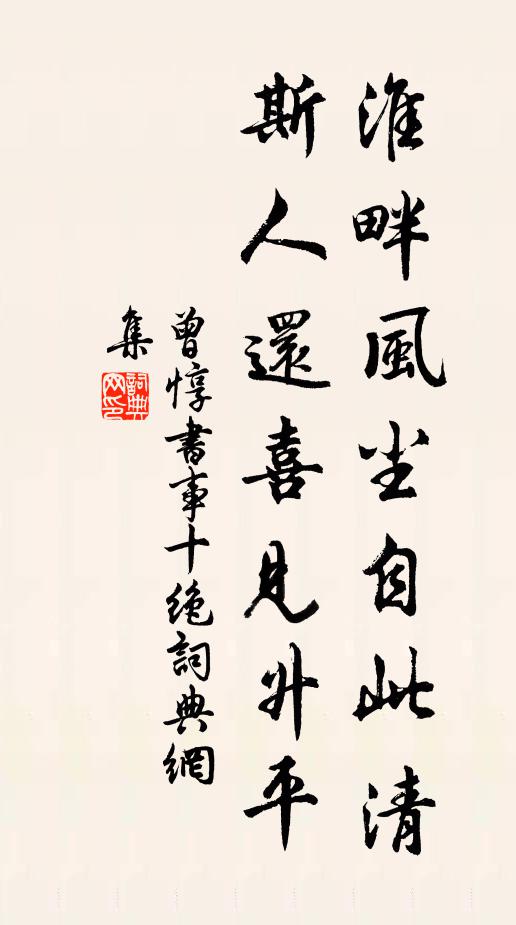 淮畔風尘自此清
斯人還喜見升平
曾惇書事十絶詞典網
集
詞典
网印